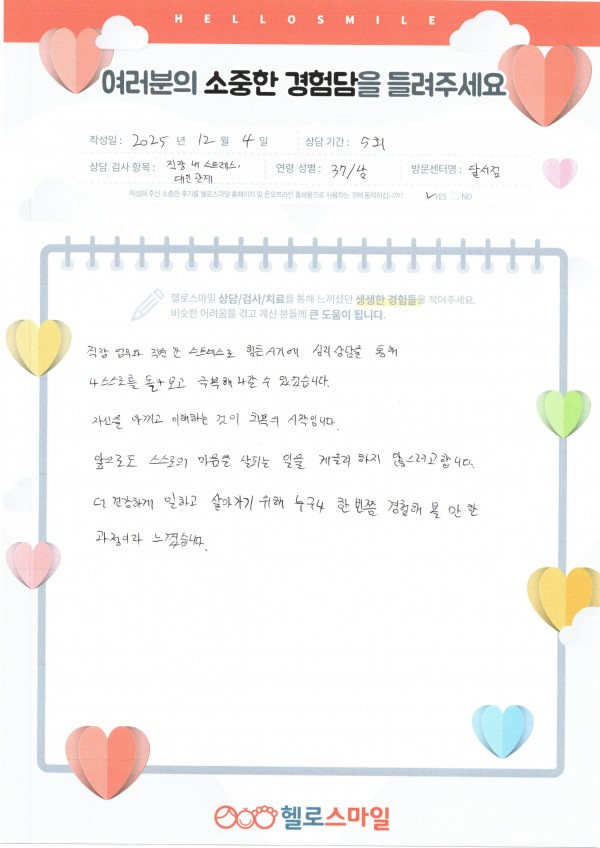 HELLOSMILE
여러분의 소중한 경험담을 들려주세요
작성일 : 2025 년 12 월 4 일 상담 기간 : 5회
상담 검사 항목 : 직장 내 스트레스, 대인관계 연령 성별 : 37/남 방문센터명 : 달서점
작성해 주신 소중한 후기를 헬로스마일 홈페이지 및 온오프라인 홍보용으로 사용하는 것에 동의하십니까? ✓YES □ NO
헬로스마일 상담/검사/치료를 통해 느끼셨던 생생한 경험들을 적어주세요.
비슷한 어려움을 겪고 계신 분들께 큰 도움이 됩니다.
직장 업무와 직원 간 스트레스로 힘든 시기에 심리상담을 통해
스스로를 돌아보고 극복해 나갈 수 있었습니다.
자신을 아끼고 이해하는 것이 회복의 시작입니다.
앞으로도 스스로의 마음을 살피는 일을 게을리 하지 않으려고 합니다.
더 건강하게 일하고 살아가기 위해 누구나 한 번쯤 경험해 볼 만한
과정이라 느꼈습니다.
헬로스마일